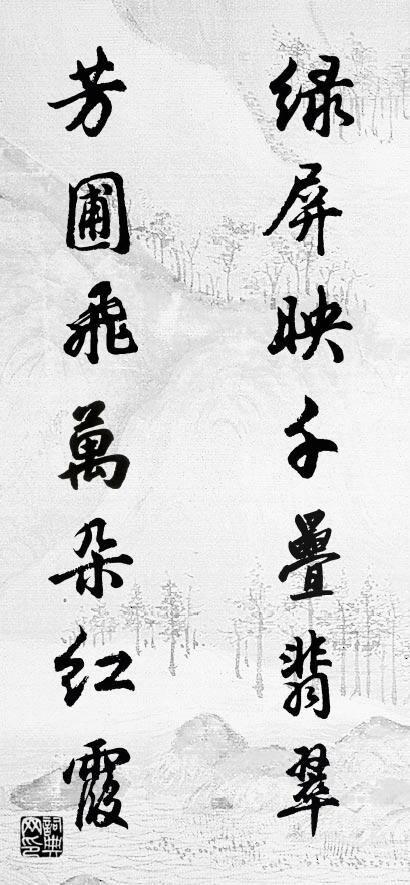 绿屏映千疊翡翠
芳圃飛萬朵红霞